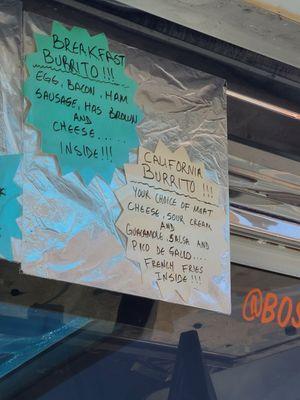 BREAKFAST
BURRITO!!!
EGG, BACON, HAM
SAUSAGE, HAS BROWN
AND
CHEESE.....
INSIDE!!!
CALIFORNIA
BURRITO!!!
YOUR CHOICE OF MEAT
CHEESE, SOUR CREAM
AND
GUACAMOLE, SALSA AND
PICO DE GALLO....
FRENCH FRIES
INSIDE!!!
@BOS